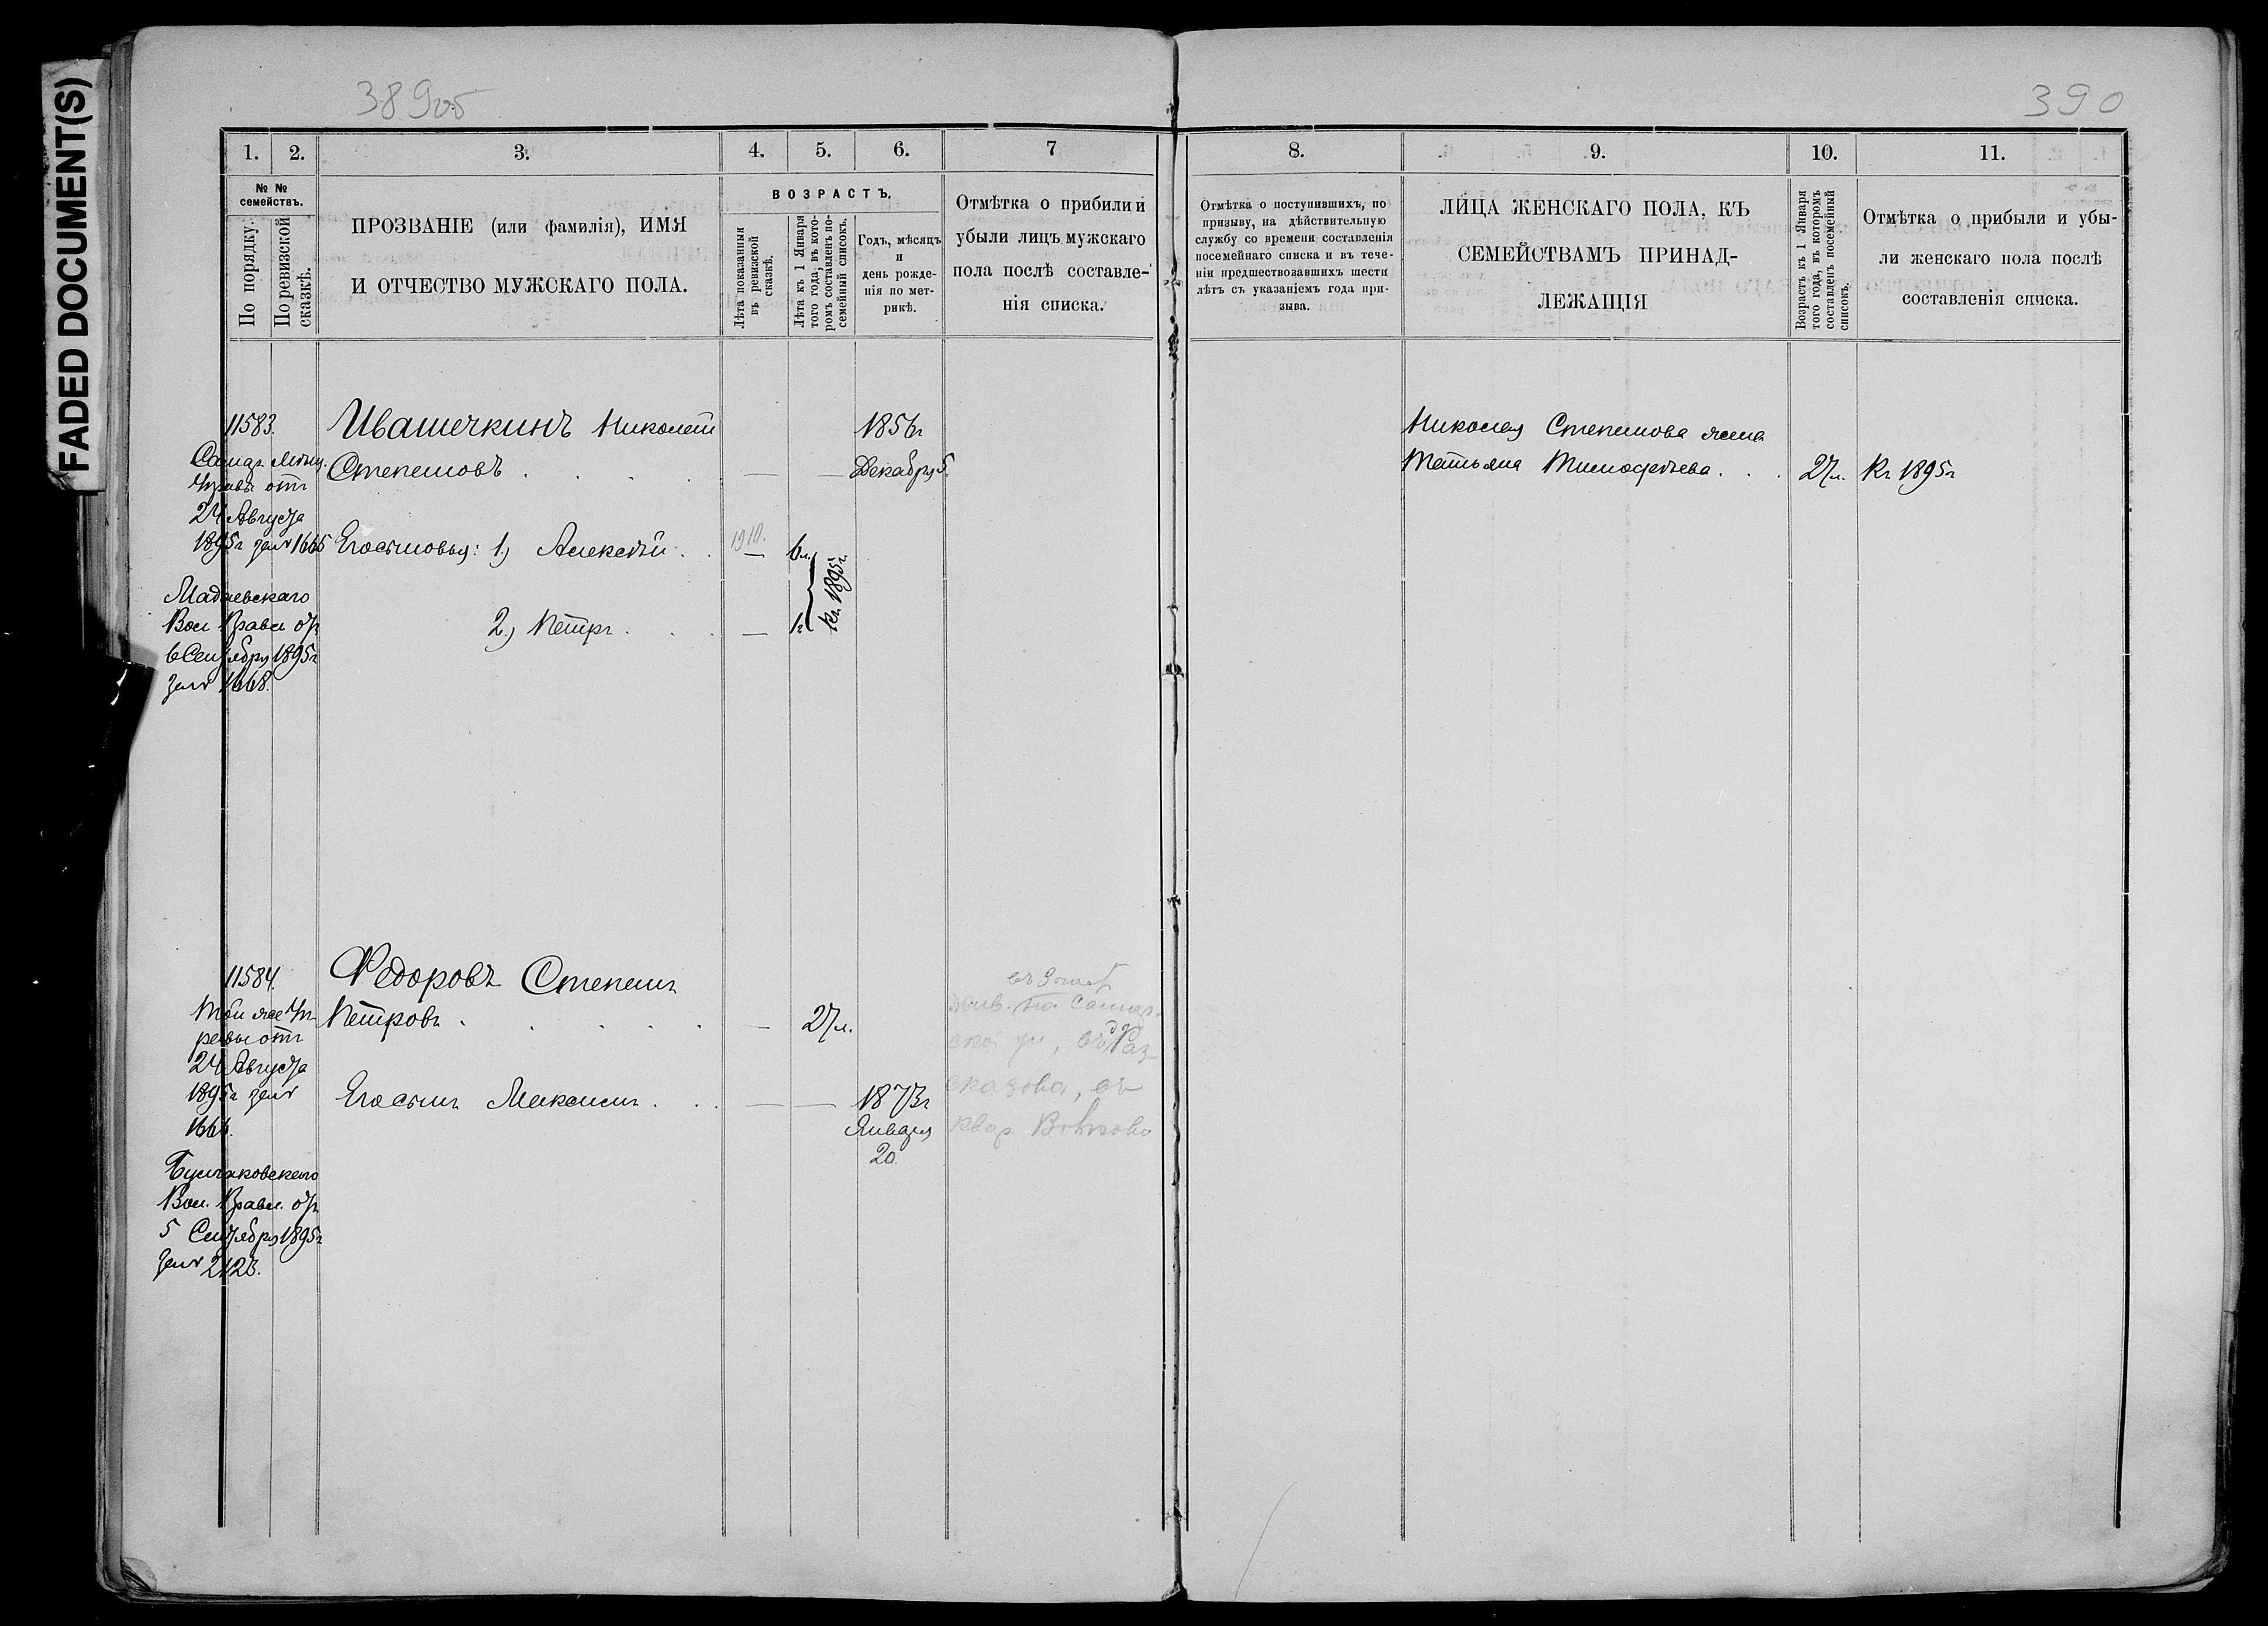 FADED DOCUMENT(S)
389об
390
1.
2.
3.
4.
5.
6.
7
8.
9.
10.
11.
№ №
семействъ.
По порядку.
По ревизской
сказкѣ.
ПРОЗВАНІЕ (или фамилія), ИМЯ
И ОТЧЕСТВО МУЖСКАГО ПОЛА.
ВОЗРАСТЪ.
Лѣта показанныя
въ ревизской
сказкѣ.
Лѣта къ 1 Января
того года, въ кото-
ромъ составленъ по-
семейный списокъ.
Годъ, мѣсяцъ
и
день рожде-
нія по мет-
рикѣ.
Отмѣтка о прибыли и
убыли лицъ мужскаго
пола послѣ составле-
нія списка.
Отмѣтка о поступившихъ, по
призыву, на дѣйствительную
службу со времени составленія
посемейнаго списка и въ тече-
ніи предшествовавшихъ шести
лѣтъ съ указаніемъ года при-
зыва.
ЛИЦА ЖЕНСКАГО ПОЛА, КЪ
СЕМЕЙСТВАМЪ ПРИНАД-
ЛЕЖАЩІЯ
Возрастъ къ 1 Января
того года, въ которомъ
составленъ посемейный
списокъ.
Отмѣтка о прибыли и убы-
ли женскаго пола послѣ
составленія списка.
11583.
Самар. Мѣщ.
Управы отъ
24 Августа
1895г за № 1665
Мадаевскаго
Вол Правл отъ
6 Сентября 1895г
за № 1668.
Ивашечкинъ Николай
Степановъ
1856г
Декабря 5.
Его сыновья: 1) Алексѣй
1910.
6л.
2) Петръ
1г
къ 1895г.
Николая Степанова жена
Татьяна Тимофѣева
27л.
Къ 1895г
11584.
Той же Уп-
равы отъ
24 Августа
1895г за №
1666.
Вол. Правл. отъ
5 Сентября 1895г
за № 2128.
Федоровъ Степанъ
Петровъ
27л.
Его сынъ Максимъ
1873г
Января
20.
жив. на Самар-
ской ул, въ д. Раз-
сказова, въ
квар.